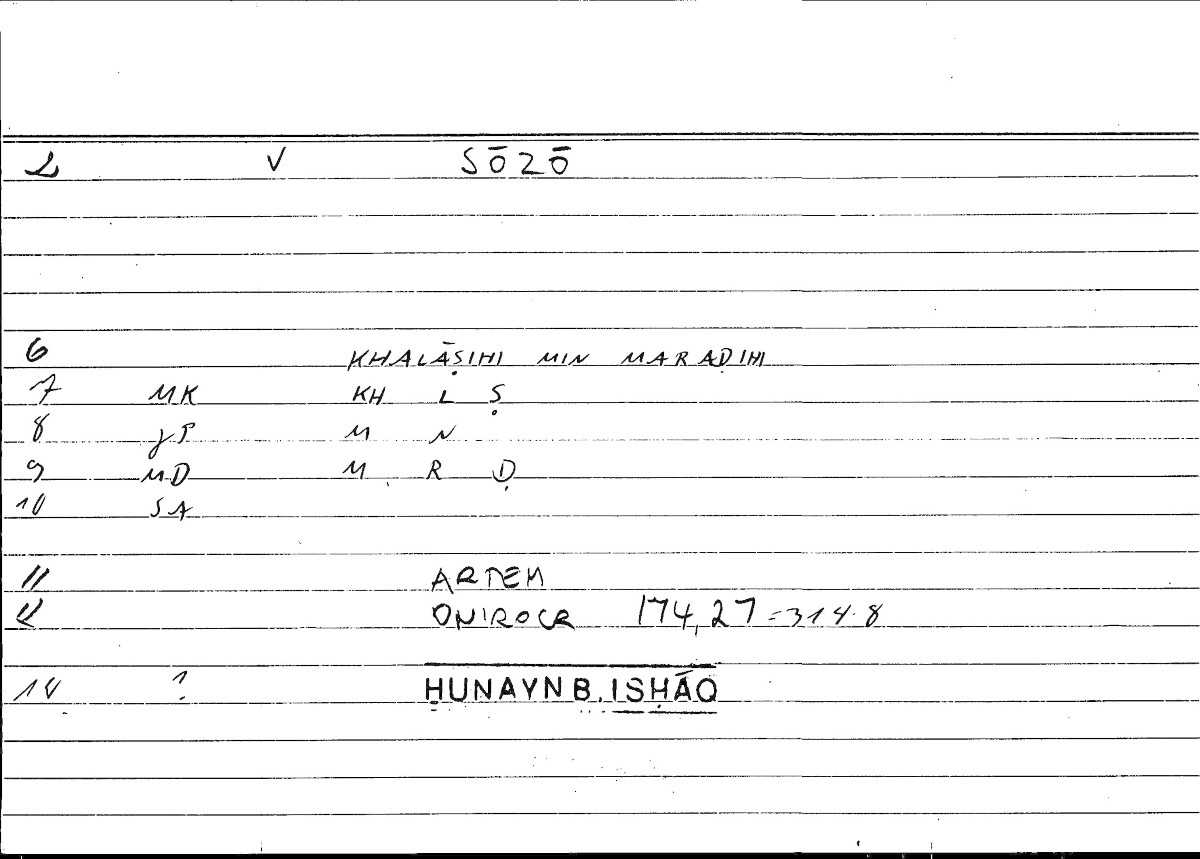 2 V SŌZŌ
6 KHALĀṢIHI MIN MARAḌIHI
7 MK KH L Ṣ
8 γP M N
9 MD M R Ḍ
10 SA
11 ARTEM
12 ONIROCR 174,27=314.8
14 1. ḤUNAYN B. ISḤĀQ